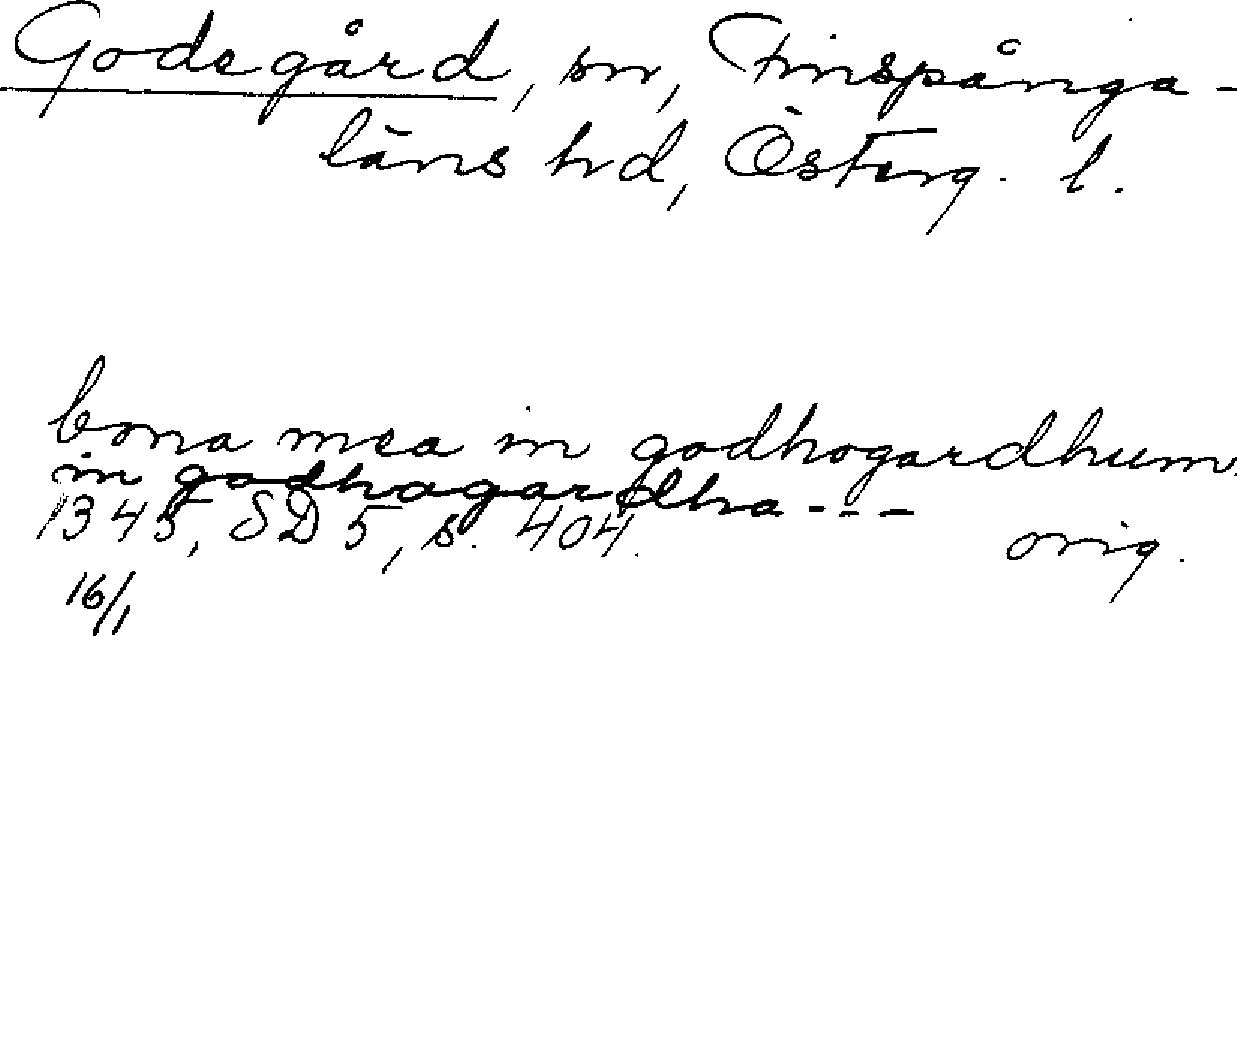 Godegård, sn, Finspånga-
läns hd, Österg. l.
bona mea in godhogardhum.
in godhagardha---
1345, SD 5, s. 404. orig.
16/1